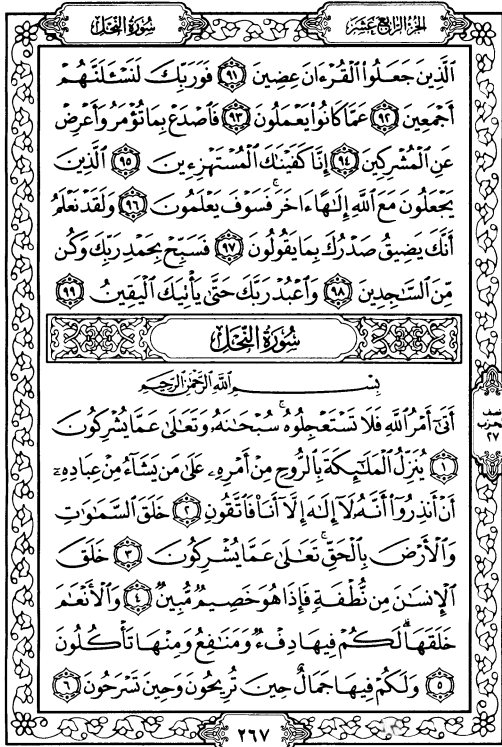 الجزء الرابع عشر
سورة النحل
الَّذِينَ جَعَلُوا الْقُرْءَانَ عِضِينَ ٩١ فَوَرَبِّكَ لَنَسْـَٔلَنَّهُمْ
أَجْمَعِينَ ٩٢ عَمَّا كَانُوا يَعْمَلُونَ ٩٣ فَاصْدَعْ بِمَا تُؤْمَرُ وَأَعْرِضْ
عَنِ الْمُشْرِكِينَ ٩٤ إِنَّا كَفَيْنَاكَ الْمُسْتَهْزِءِينَ ٩٥ الَّذِينَ
يَجْعَلُونَ مَعَ اللَّهِ إِلَـٰهًا ءَاخَرَ ۚ فَسَوْفَ يَعْلَمُونَ ٩٦ وَلَقَدْ نَعْلَمُ
أَنَّكَ يَضِيقُ صَدْرُكَ بِمَا يَقُولُونَ ٩٧ فَسَبِّحْ بِحَمْدِ رَبِّكَ وَكُن
مِّنَ السَّـٰجِدِينَ ٩٨ وَاعْبُدْ رَبَّكَ حَتَّىٰ يَأْتِيَكَ الْيَقِينُ ٩٩
سورة النحل
بِسْمِ اللَّهِ الرَّحْمَـٰنِ الرَّحِيمِ
أَتَىٰٓ أَمْرُ اللَّهِ فَلَا تَسْتَعْجِلُوهُ ۚ سُبْحَـٰنَهُۥ وَتَعَـٰلَىٰ عَمَّا يُشْرِكُونَ
١ يُنَزِّلُ الْمَلَـٰٓئِكَةَ بِالرُّوحِ مِنْ أَمْرِهِۦ عَلَىٰ مَن يَشَآءُ مِنْ عِبَادِهِۦٓ
أَنْ أَنذِرُوٓا أَنَّهُۥ لَآ إِلَـٰهَ إِلَّآ أَنَا۠ فَاتَّقُونِ ٢ خَلَقَ السَّمَـٰوَٰتِ
وَالْأَرْضَ بِالْحَقِّ ۚ تَعَـٰلَىٰ عَمَّا يُشْرِكُونَ ٣ خَلَقَ
الْإِنسَـٰنَ مِن نُّطْفَةٍ فَإِذَا هُوَ خَصِيمٌ مُّبِينٌ ٤ وَالْأَنْعَـٰمَ
خَلَقَهَا ۗ لَكُمْ فِيهَا دِفْءٌ وَمَنَـٰفِعُ وَمِنْهَا تَأْكُلُونَ
٥ وَلَكُمْ فِيهَا جَمَالٌ حِينَ تُرِيحُونَ وَحِينَ تَسْرَحُونَ ٦
نصف
الحزب
٢٧
٢٦٧